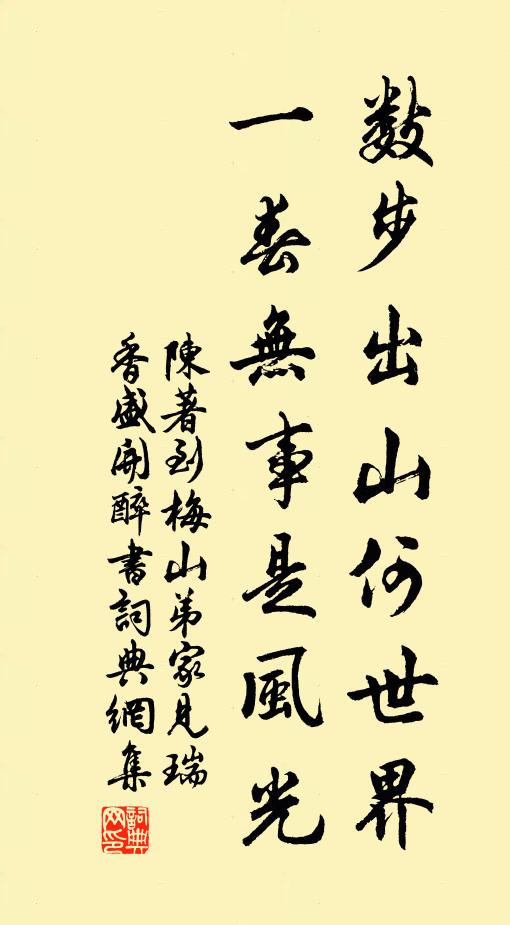 數步出山何世界
一春無事是風光
陳著到梅山弟家見瑞
香盛開醉書詞典網集
詞典網印